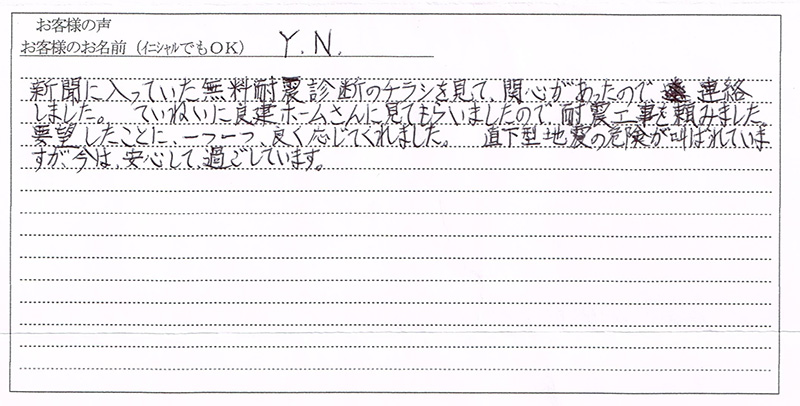 お客様の声
お客様のお名前（イニシャルでもOK） Y.N.
新聞に入っていた無料耐震診断のチラシを見て、関心があったので 連絡
しました。 ていねいに良建ホームさんに見てもらいましたので、耐震工事を頼みました。
要望したことに、一つ一つ、良く応じてくれました。 直下型地震の危険が叫ばれていま
すが、今は、安心して、過ごしています。